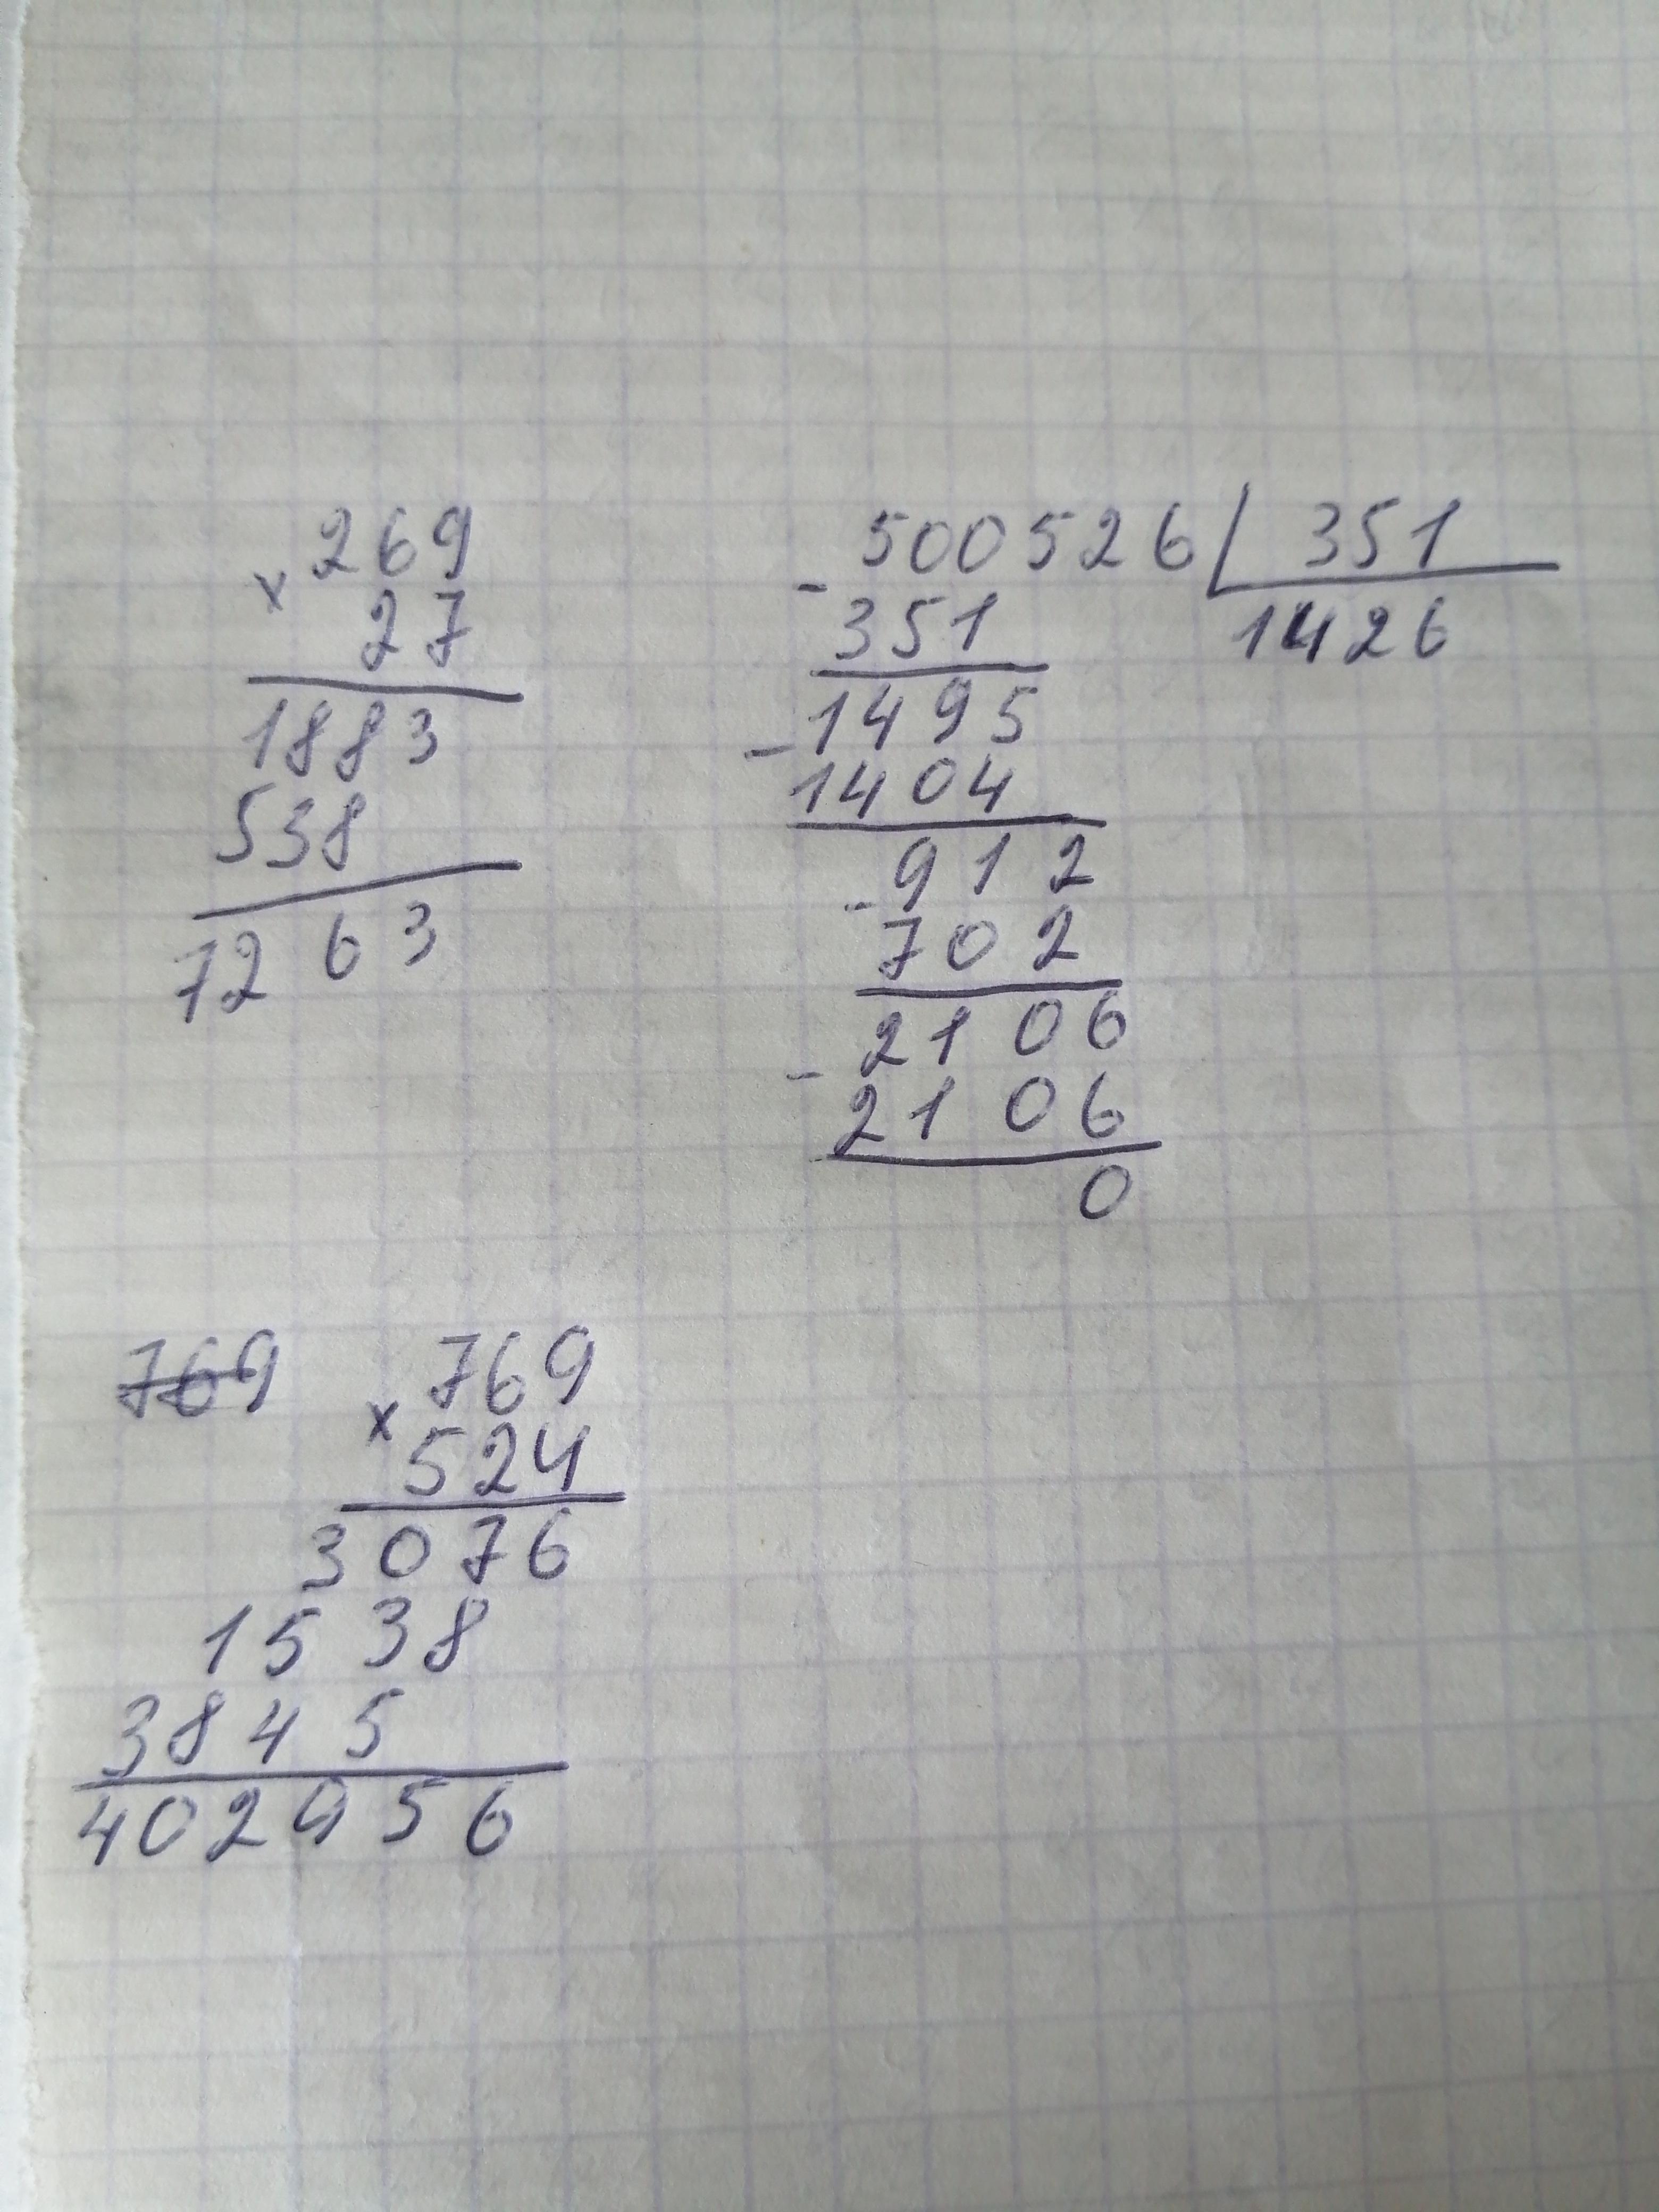 269
× 27
1883
538
7263
500526 | 351
- 351
1426
1495
- 1404
912
- 702
2106
- 2106
0
769
769
× 524
3076
1538
3845
402956